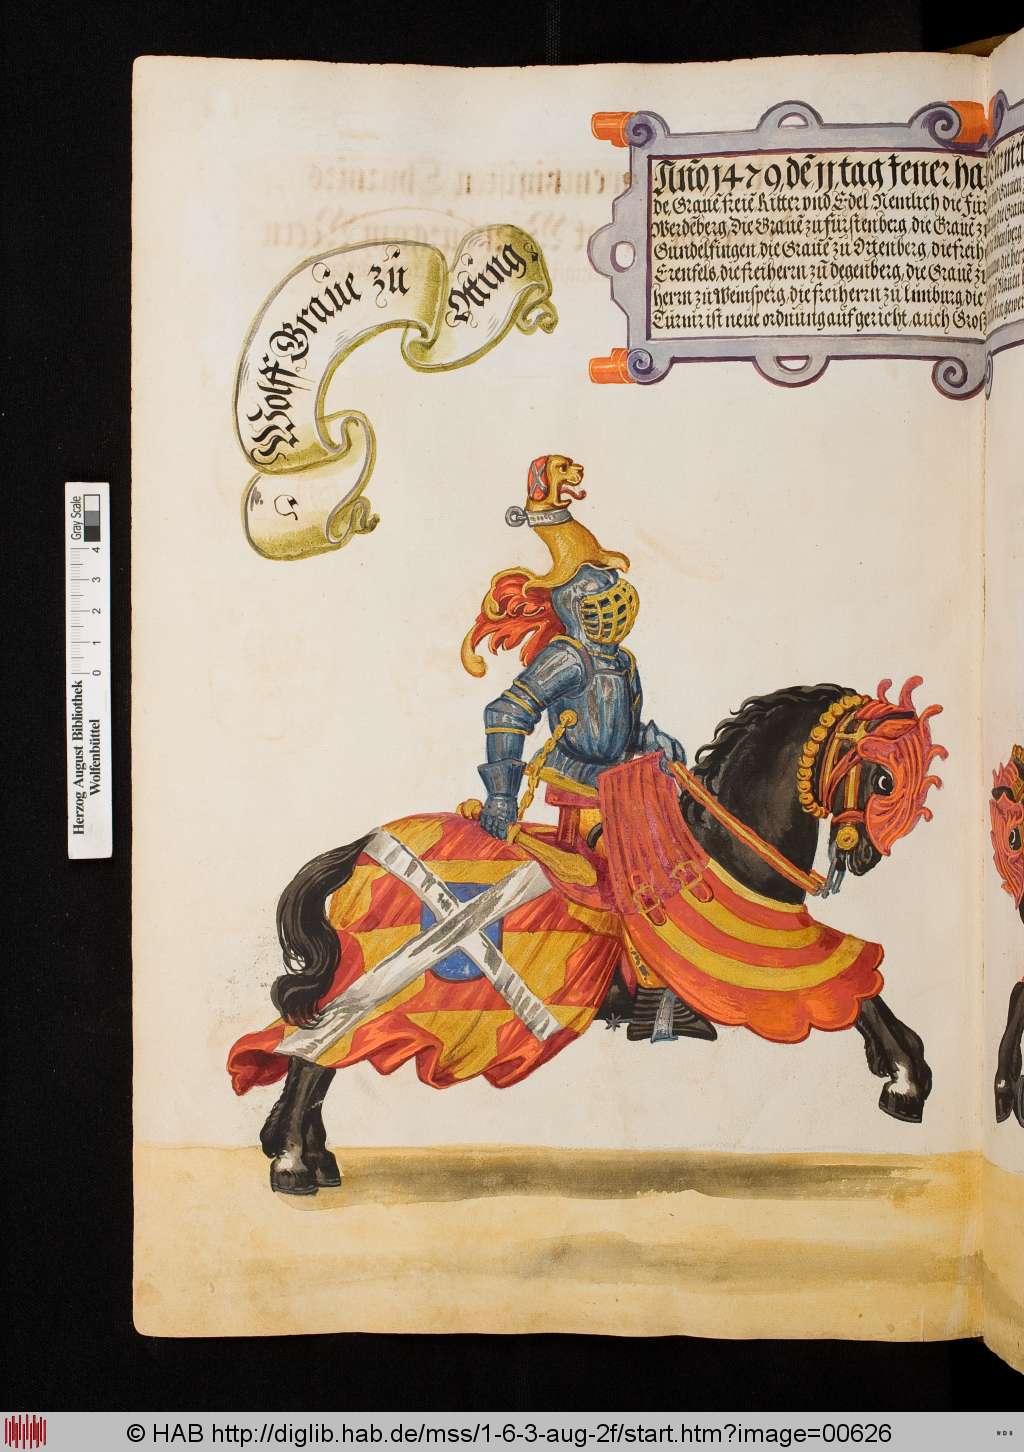 Wolff Graue zů Otting
Año, 1479, dē 11, tag Jener, ha-
de, Grauē freiē Ritter vnd Edel Nemlich die Für
Werdēberg, Die Grauē zu fürstenberg, die Grauē z
Gundelfingen, die Grauē zu Ortenberg, die freih
Erenfels, die freiherrn zū degenberg, die Grauē zi
herrn zů Weinsperg, die freiherrn zu limburg, die
Turnir ist neue ordnung auf gericht, auch Groß
Herzog August Bibliothek
Wolfenbüttel
0 1 2 3 4
Gray Scale
© HAB http://diglib.hab.de/mss/1-6-3-aug-2f/start.htm?image=00626
WDB